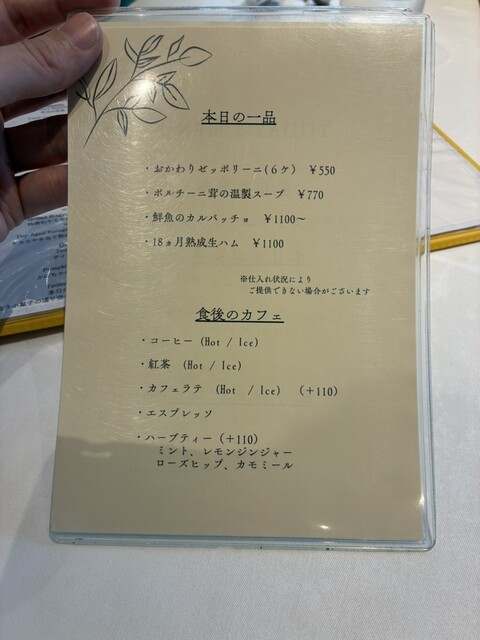 本日の一品
・おかわりゼッポリーニ(6ケ) ¥550
・ポルチーニ茸の温製スープ ¥770
・鮮魚のカルパッチョ ¥1100~
・18ヵ月熟成生ハム ¥1100
※仕入れ状況により
ご提供できない場合がございます
食後のカフェ
・コーヒー (Hot / Ice)
・紅茶 (Hot / Ice)
・カフェラテ (Hot / Ice) (+110)
・エスプレッソ
・ハーブティー(+110)
ミント、レモンジンジャー
ローズヒップ、カモミール